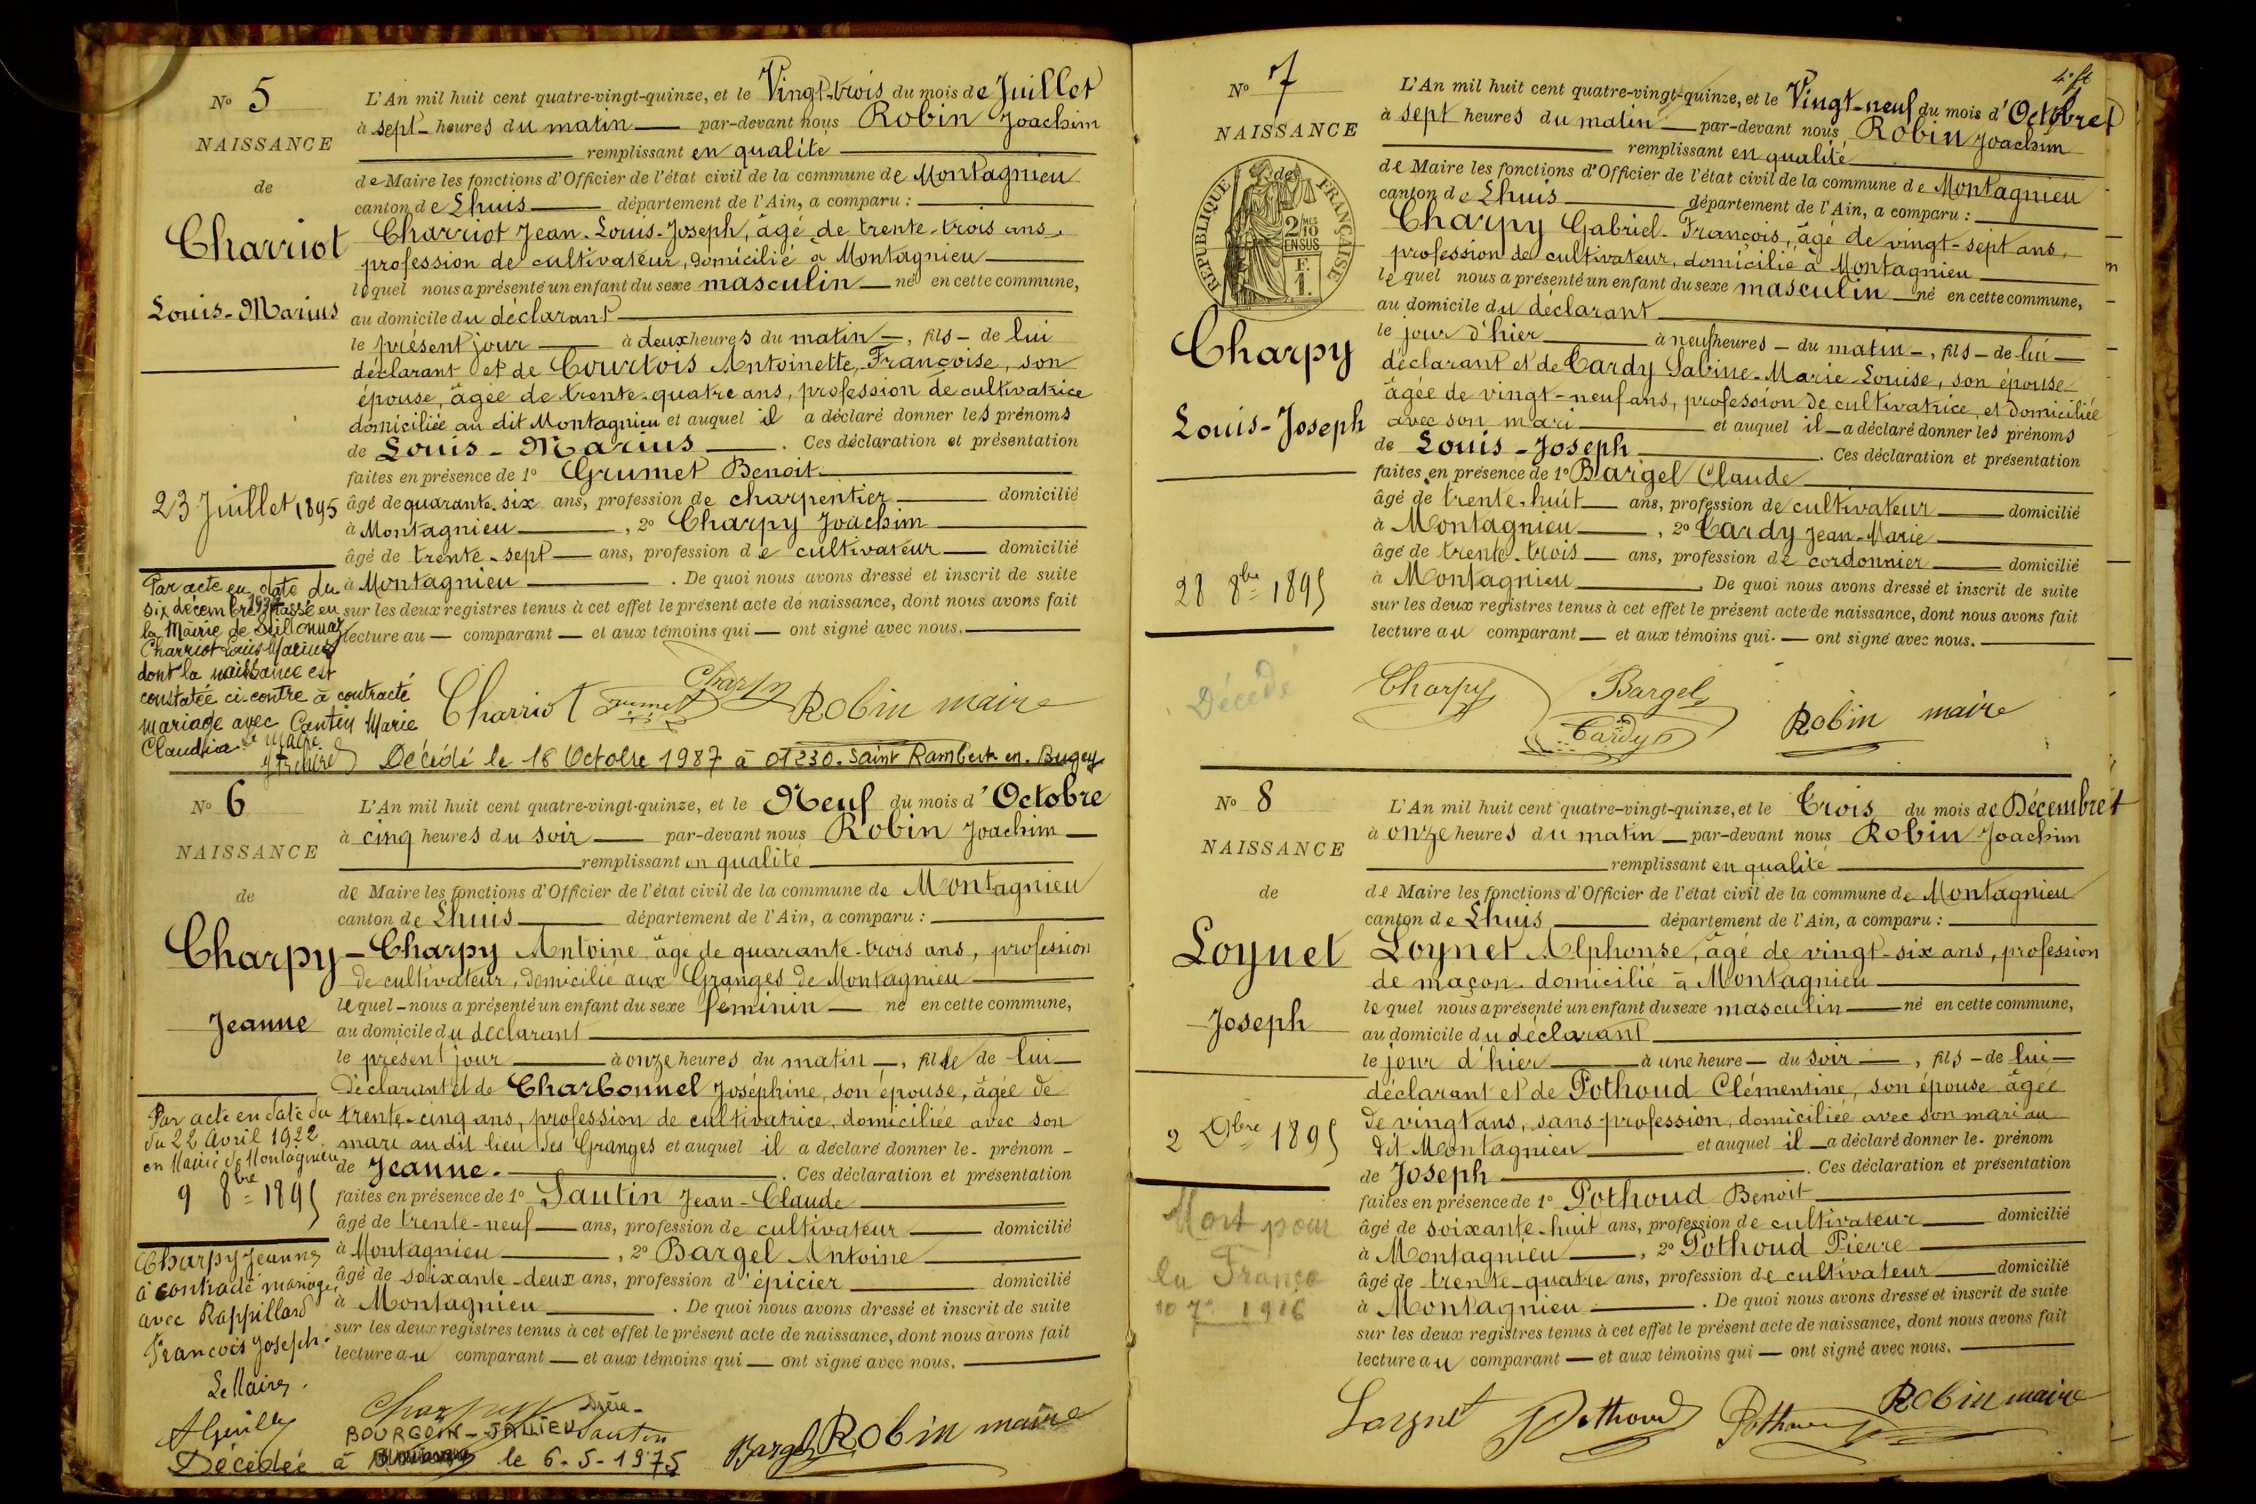 N° 5
NAISSANCE
de
Charriot
Louis-Marius
23 Juillet 1895
Par acte en date du
six décembre passé en
la Mairie de
Charriot Louis Marius
dont la naissance est
constatée ci-contre à contracté
mariage avec Cantin Marie
Claudia. le Maire
L'An mil huit cent quatre-vingt-quinze, et le Vingt-trois du mois de Juillet
à sept heures du matin par-devant nous Robin Joachim
remplissant en qualité
de Maire les fonctions d'Officier de l'état civil de la commune de Montagnieu
canton de Lhuis département de l'Ain, a comparu :
Charriot Jean-Louis-Joseph, âgé de trente-trois ans,
profession de cultivateur, domicilié à Montagnieu
lequel nous a présenté un enfant du sexe masculin né en cette commune,
au domicile du déclarant
le présent jour à deux heures du matin, fils de lui
déclarant et de Courtois Antoinette-Françoise, son
épouse, âgée de trente-quatre ans, profession de cultivatrice
domiciliée au dit Montagnieu et auquel il a déclaré donner les prénoms
de Louis-Marius. Ces déclaration et présentation
faites en présence de 1° Grumet Benoit
âgé de quarante-six ans, profession de charpentier domicilié
à Montagnieu, 2° Charpy Joachim
âgé de trente-sept ans, profession de cultivateur domicilié
à Montagnieu. De quoi nous avons dressé et inscrit de suite
sur les deux registres tenus à cet effet le présent acte de naissance, dont nous avons fait
lecture au comparant et aux témoins qui ont signé avec nous.
Charriot Grumet Charpy Robin maire
Décédé le 18 Octobre 1987 à 01230. Saint Rambert en Bugey
N° 6
NAISSANCE
de
Charpy
Jeanne
Par acte en date du
du 22 Avril 1922
en Mairie de Montagnieu
9 8bre 1895
Charpy Jeanne
à contracté mariage
avec Rappillard
François Joseph.
Le Maire,
L'An mil huit cent quatre-vingt-quinze, et le Neuf du mois d'Octobre
à cinq heures du soir par-devant nous Robin Joachim
remplissant en qualité
de Maire les fonctions d'Officier de l'état civil de la commune de Montagnieu
canton de Lhuis département de l'Ain, a comparu :
Charpy Antoine âgé de quarante-trois ans, profession
de cultivateur, domicilié aux Granges de Montagnieu
lequel nous a présenté un enfant du sexe féminin né en cette commune,
au domicile du déclarant
le présent jour à onze heures du matin, fille de lui
déclarant et de Charbonnel Joséphine, son épouse, âgée de
trente-cinq ans, profession de cultivatrice, domiciliée avec son
mari au dit lieu des Granges et auquel il a déclaré donner le prénom
de Jeanne. Ces déclaration et présentation
faites en présence de 1° Santin Jean-Claude
âgé de trente-neuf ans, profession de cultivateur domicilié
à Montagnieu, 2° Bargel Antoine
âgé de soixante-deux ans, profession d'épicier domicilié
à Montagnieu. De quoi nous avons dressé et inscrit de suite
sur les deux registres tenus à cet effet le présent acte de naissance, dont nous avons fait
lecture au comparant et aux témoins qui ont signé avec nous.
Charpy Santin Bargel Robin maire
Isère
BOURGOIN-JALLIEU
Décédée à le 6-5-1975
4e ft
N° 7
NAISSANCE
de
RÉPUBLIQUE FRANÇAISE
2/10 MES
EN SUS
F.
1.
Charpy
Louis-Joseph
28 8bre 1895
Décédé
L'An mil huit cent quatre-vingt-quinze, et le Vingt-neuf du mois d'Octobre
à sept heures du matin par-devant nous Robin Joachim
remplissant en qualité
de Maire les fonctions d'Officier de l'état civil de la commune de Montagnieu
canton de Lhuis département de l'Ain, a comparu :
Charpy Gabriel-François, âgé de vingt-sept ans,
profession de cultivateur, domicilié à Montagnieu
lequel nous a présenté un enfant du sexe masculin né en cette commune,
au domicile du déclarant
le jour d'hier à neuf heures du matin, fils de lui
déclarant et de Cardy Sabine-Marie-Louise, son épouse
âgée de vingt-neuf ans, profession de cultivatrice, et domiciliée
avec son mari et auquel il a déclaré donner les prénoms
de Louis-Joseph. Ces déclaration et présentation
faites en présence de 1° Bargel Claude
âgé de trente-huit ans, profession de cultivateur domicilié
à Montagnieu, 2° Cardy Jean-Marie
âgé de trente-trois ans, profession de cordonnier domicilié
à Montagnieu. De quoi nous avons dressé et inscrit de suite
sur les deux registres tenus à cet effet le présent acte de naissance, dont nous avons fait
lecture au comparant et aux témoins qui ont signé avec nous.
Charpy Bargel Cardy Robin maire
N° 8
NAISSANCE
de
Loynet
Joseph
2 Dbre 1895
Mort pour
la France
10 7e 1916
L'An mil huit cent quatre-vingt-quinze, et le Trois du mois de Décembre
à onze heures du matin par-devant nous Robin Joachim
remplissant en qualité
de Maire les fonctions d'Officier de l'état civil de la commune de Montagnieu
canton de Lhuis département de l'Ain, a comparu :
Loynet Alphonse, âgé de vingt-six ans, profession
de maçon domicilié à Montagnieu
lequel nous a présenté un enfant du sexe masculin né en cette commune,
au domicile du déclarant
le jour d'hier à une heure du soir, fils de lui
déclarant et de Pothoud Clémentine, son épouse âgée
de vingt ans, sans profession, domiciliée avec son mari au
dit Montagnieu et auquel il a déclaré donner le prénom
de Joseph. Ces déclaration et présentation
faites en présence de 1° Pothoud Benoit
âgé de soixante-huit ans, profession de cultivateur domicilié
à Montagnieu, 2° Pothoud Pierre
âgé de trente-quatre ans, profession de cultivateur domicilié
à Montagnieu. De quoi nous avons dressé et inscrit de suite
sur les deux registres tenus à cet effet le présent acte de naissance, dont nous avons fait
lecture au comparant et aux témoins qui ont signé avec nous.
Loynet Pothoud Pothoud Robin maire